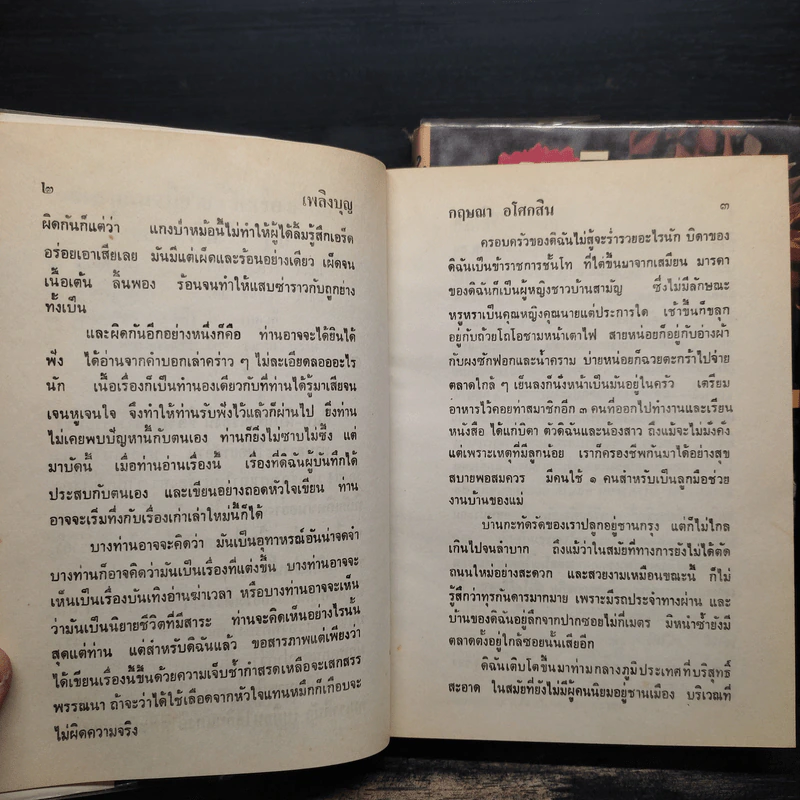 ๒
เพลิงบุญ
ผิดกันก็แต่ว่า แกงบ่ำหม้อนี้ไม่ทำให้ผู้ได้ลิ้มรู้สึกเอร็ด
อร่อยเอาเสียเลย มันมีแต่เผ็ดและร้อนอย่างเดียว เผ็ดจน
เนื้อเต้น ลิ้นพอง ร้อนจนทำให้แสบซ่าราวกับถูกย่าง
ทั้งเป็น
และผิดกันอีกอย่างหนึ่งก็คือ ท่านอาจจะได้ยินได้
ฟัง ได้อ่านจากคำบอกเล่าคร่าว ๆ ไม่ละเอียดลออะไร
นัก เนื้อเรื่องก็เป็นทำนองเดียวกับที่ท่านได้รู้มาเสียจน
เจนหูเจนใจ จึงทำให้ท่านรับฟังไว้แล้วก็ผ่านไป ยิ่งท่าน
ไม่เคยพบปัญหานี้กับตนเอง ท่านก็ยิ่งไม่ซาบไม่ซึ้ง แต่
มาบัดนี้ เมื่อท่านอ่านเรื่องนี้ เรื่องที่ดิฉันผู้บันทึกได้
ประสบกับตนเอง และเขียนอย่างถอดหัวใจเขียน ท่าน
อาจจะเริ่มทึ่งกับเรื่องเก่าเล่าใหม่นี้ก็ได้
บางท่านอาจจะคิดว่า มันเป็นอุทาหรณ์อันน่าจดจำ
บางท่านก็อาจคิดว่ามันเป็นเรื่องที่แต่งขึ้น บางท่านอาจจะ
เห็นเป็นเรื่องบันเทิงอ่านฆ่าเวลา หรือบางท่านอาจจะเห็น
ว่ามันเป็นนิยายชีวิตที่มีสาระ ท่านจะคิดเห็นอย่างไรนั้น
สุดแต่ท่าน แต่สำหรับดิฉันแล้ว ขอสารภาพแต่เพียงว่า
ได้เขียนเรื่องนี้ขึ้นด้วยความเจ็บช้ำกำสรดเหลือจะเสกสรร
พรรณนา ถ้าจะว่าได้ใช้เลือดจากหัวใจแทนหมึกก็เกือบจะ
ไม่ผิดความจริง
กฤษณา อโศกสิน
๓
ครอบครัวของดิฉันไม่สู้จะร่ำรวยอะไรนัก บิดาของ
ดิฉันเป็นข้าราชการชั้นโท ที่ไต่ขึ้นมาจากเสมียน มารดา
ของดิฉันก็เป็นผู้หญิงชาวบ้านสามัญ ซึ่งไม่มีลักษณะ
หรูหราเป็นคุณหญิงคุณนายแต่ประการใด เช้าขึ้นก็ขลุก
อยู่กับถ้วยโถโอชามหน้าเตาไฟ สายหน่อยก็อยู่กับอ่างผ้า
กับผงซักฟอกและน้ำคราม บ่ายหน่อยก็ฉวยตะกร้าไปจ่าย
ตลาดใกล้ ๆ เย็นลงก็นั่งหน้าเป็นมันอยู่ในครัว เตรียม
อาหารไว้คอยท่าสมาชิกอีก ๓ คนที่ออกไปทำงานและเรียน
หนังสือ ได้แก่บิดา ตัวดิฉันและน้องสาว ถึงแม้จะไม่มั่งคั่ง
แต่เพราะเหตุที่มีลูกน้อย เราก็ครองชีพกันมาได้อย่างสุข
สบายพอสมควร มีคนใช้ ๑ คนสำหรับเป็นลูกมือช่วย
งานบ้านของแม่
บ้านกะทัดรัดของเราปลูกอยู่ชานกรุง แต่ก็ไม่ไกล
เกินไปจนลำบาก ถึงแม้ว่าในสมัยที่ทางการยังไม่ได้ตัด
ถนนใหม่อย่างสะดวก และสวยงามเหมือนขณะนี้ ก็ไม่
รู้สึกว่าทุรกันดารมากมาย เพราะมีรถประจำทางผ่าน และ
บ้านของดิฉันอยู่ลึกจากปากซอยไม่กี่เมตร มีหนำซ้ำยังมี
ตลาดตั้งอยู่ใกล้ซอยนั้นเสียอีก
ดิฉันเติบโตขึ้นมาท่ามกลางภูมิประเทศที่บริสุทธิ์
สะอาด ในสมัยที่ยังไม่มีผู้คนนิยมอยู่ชานเมือง บริเวณที่